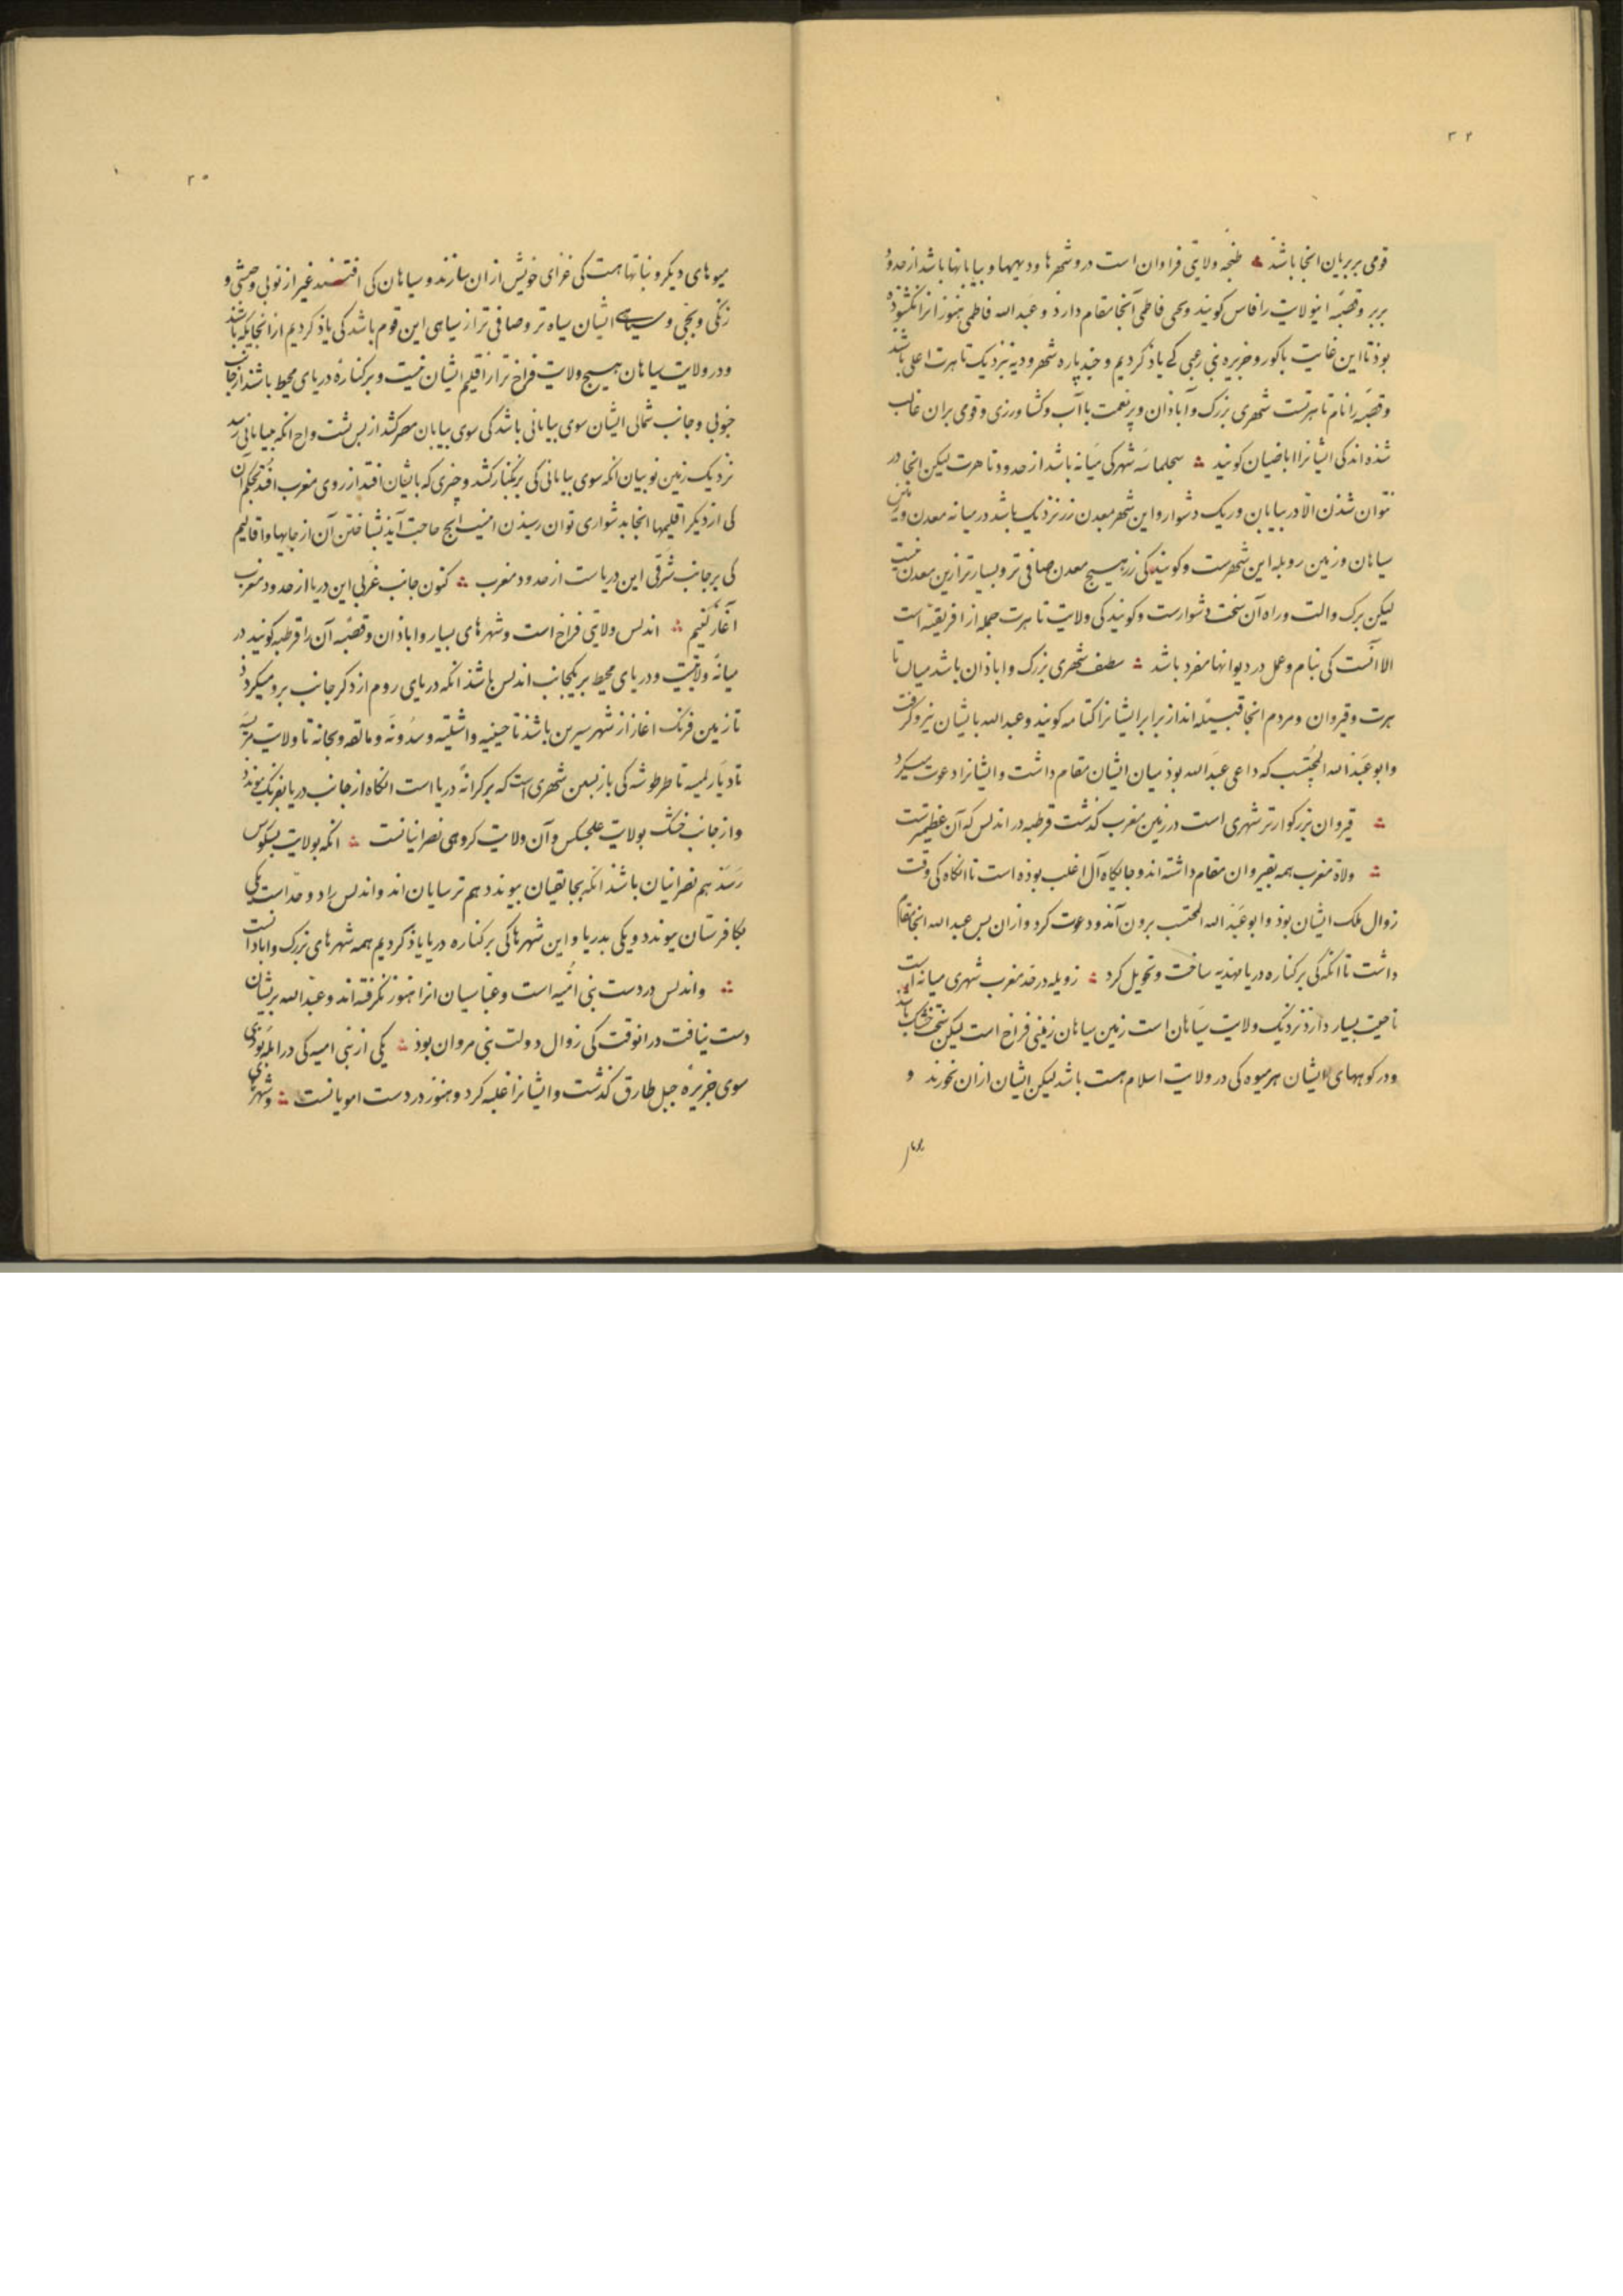 ۳۴
قومی بربریان انجا باشذ ؞ طنجه ولایتی فراوان است درو شهرها و دیهها و بیابانها باشد از حدود
بربر و قصبه اینولایت را فاس کویند و یحیی فاطمی آنجا مقام دارد و عبدالله فاطمی هنوز انرا نکشوذه
بوذ تا این غایت باکور و جزیره بنی رعبی کے یاذ کردیم و چند پاره شهر و دیه بنزدیک تاهرت اعلی باشد
و قصبه را نام تاهرتست شهری بزرک و آباذان و پر نعمت با آب و کشاورزی و قومی بران غالب
شذه اند کی ایشانرا اباضیان کویند ؞ سجلماسه شهرکی میانه باشد از حدود تاهرت لیکن انجا در
نتوان شذن الا در بیابان و ریک دشوار و این شهر معدن زر نزدیک باشد در میانه معدن و زمین
سیاهان و زمین رویله این شهرست و کویند کی زر هیچ معدن صافی تر و بسیارتر ازین معدن نیست
لیکن برک و الت و راه آن سخت دشوارست و کویند کی ولایت تاهرت جمله از افریقیه است
الا آنست کی بنام و عمل در دیوانها مفرد باشد ؞ سطف شهری بزرک و اباذان باشد میان تا
هرت و قیروان و مردم انجا قبیله اند از بربر ایشانرا کتامه کویند و عبدالله بایشان نیرو کرفت
و ابو عبدالله المحتسب که داعی عبدالله بوذ میان ایشان مقام داشت و ایشانرا دعوت میکرد
؞ قیروان بزرکوارتر شهری است در زمین مغرب کذشت قرطبه در اندلس که آن عظیمترست
؞ ولاة مغرب همه بقیروان مقام داشته اند و جایکاه آل اغلب بوذه است تا انکاه کی وقت
زوال ملک ایشان بوذ و ابو عبدالله المحتسب برون آمذ و دعوت کرد و ازان پس عبدالله انجا مقام
داشت تا انکه کی بر کناره دریا مهدیه ساخت و تحویل کرد ؞ زویله در حد مغرب شهری میانه است
ناحیت بسیار دارذ نزدیک ولایت سیاهان است زمین سیاهان زمینی فراخ است لیکن سخت خشک باشد
و در کوههای ایشان هر میوه کی در ولایت اسلام هست باشد لیکن ایشان ازان نخورند و
۳۵
میوهای دیکر و نباتها هست کی غذای خویش ازان سازند و سیاهان کی افتند غیر از نوبی و حبشی و
زنکی و بجی و سیاهی ایشان سیاه تر و صافی تر از سیاهی این قوم باشد کی یاذ کردیم از انجایکه باشد
و در ولایت سیاهان هیچ ولایت فراخ تر از اقلیم ایشان نیست و بر کناره دریای محیط باشد از جانب
جنوبی و جانب شمالی ایشان سوی بیابانی باشد کی سوی بیابان مصر کشد از پس پشت واح انکه بیابانی رسد
نزدیک زمین نوبیان انکه سوی بیابانی کی بزنکبار کشد و چیزی که بایشان افتد از روی مغرب افتد بحکم آن
کی از دیکر اقلیمها انجا بدشواری توان رسیذن اینست انچ حاجت آیذ بشناختن آن از جایها و اقالیم
کی بر جانب شرقی این دریاست از حدود مغرب ؞ کنون جانب غربی این دریا از حدود مغرب
آغاز کنیم ؞ اندلس ولایتی فراخ است و شهرهای بسیار و اباذان و قصبه آن را قرطبه کویند در
میانه ولایت و دریای محیط بر یکجانب اندلس باشذ انکه دریای روم از دکر جانب برو میکردد
تا زمین فرنک اغاز از شهر سیرین باشذ تا جینیه و اشبلیه و سدونه و مالقه و بجانه تا ولایت مرسیه
تا دیار بلنسیه تا طرطوشه کی باز پسین شهری است که بر کرانه دریا است انکاه از جانب دریا بفرنک پیوندد
و از جانب خشک بولایت علجسکس و آن ولایت کروهی نصرانیانست ؞ انکه بولایت بسکونس
رسد هم نصرانیان باشذ انکه بجالقیان پیوندد هم ترسایان اند و اندلس را دو حد است یکی
بکافرستان پیوندد و یکی بدریا و این شهرها کی بر کناره دریا یاذ کردیم همه شهرهای بزرک و اباذانست
؞ و اندلس در دست بنی امیه است و عباسیان انرا هنوز نکرفته اند و عبدالله بریشان
دست نیافت در انوقت کی زوال دولت بنی مروان بوذ ؞ یکی از بنی امیه کی در
سوی جزیره جبل طارق کذشت و ایشانرا غلبه کرد و هنوز در دست امویانست ؞ و شهرهای